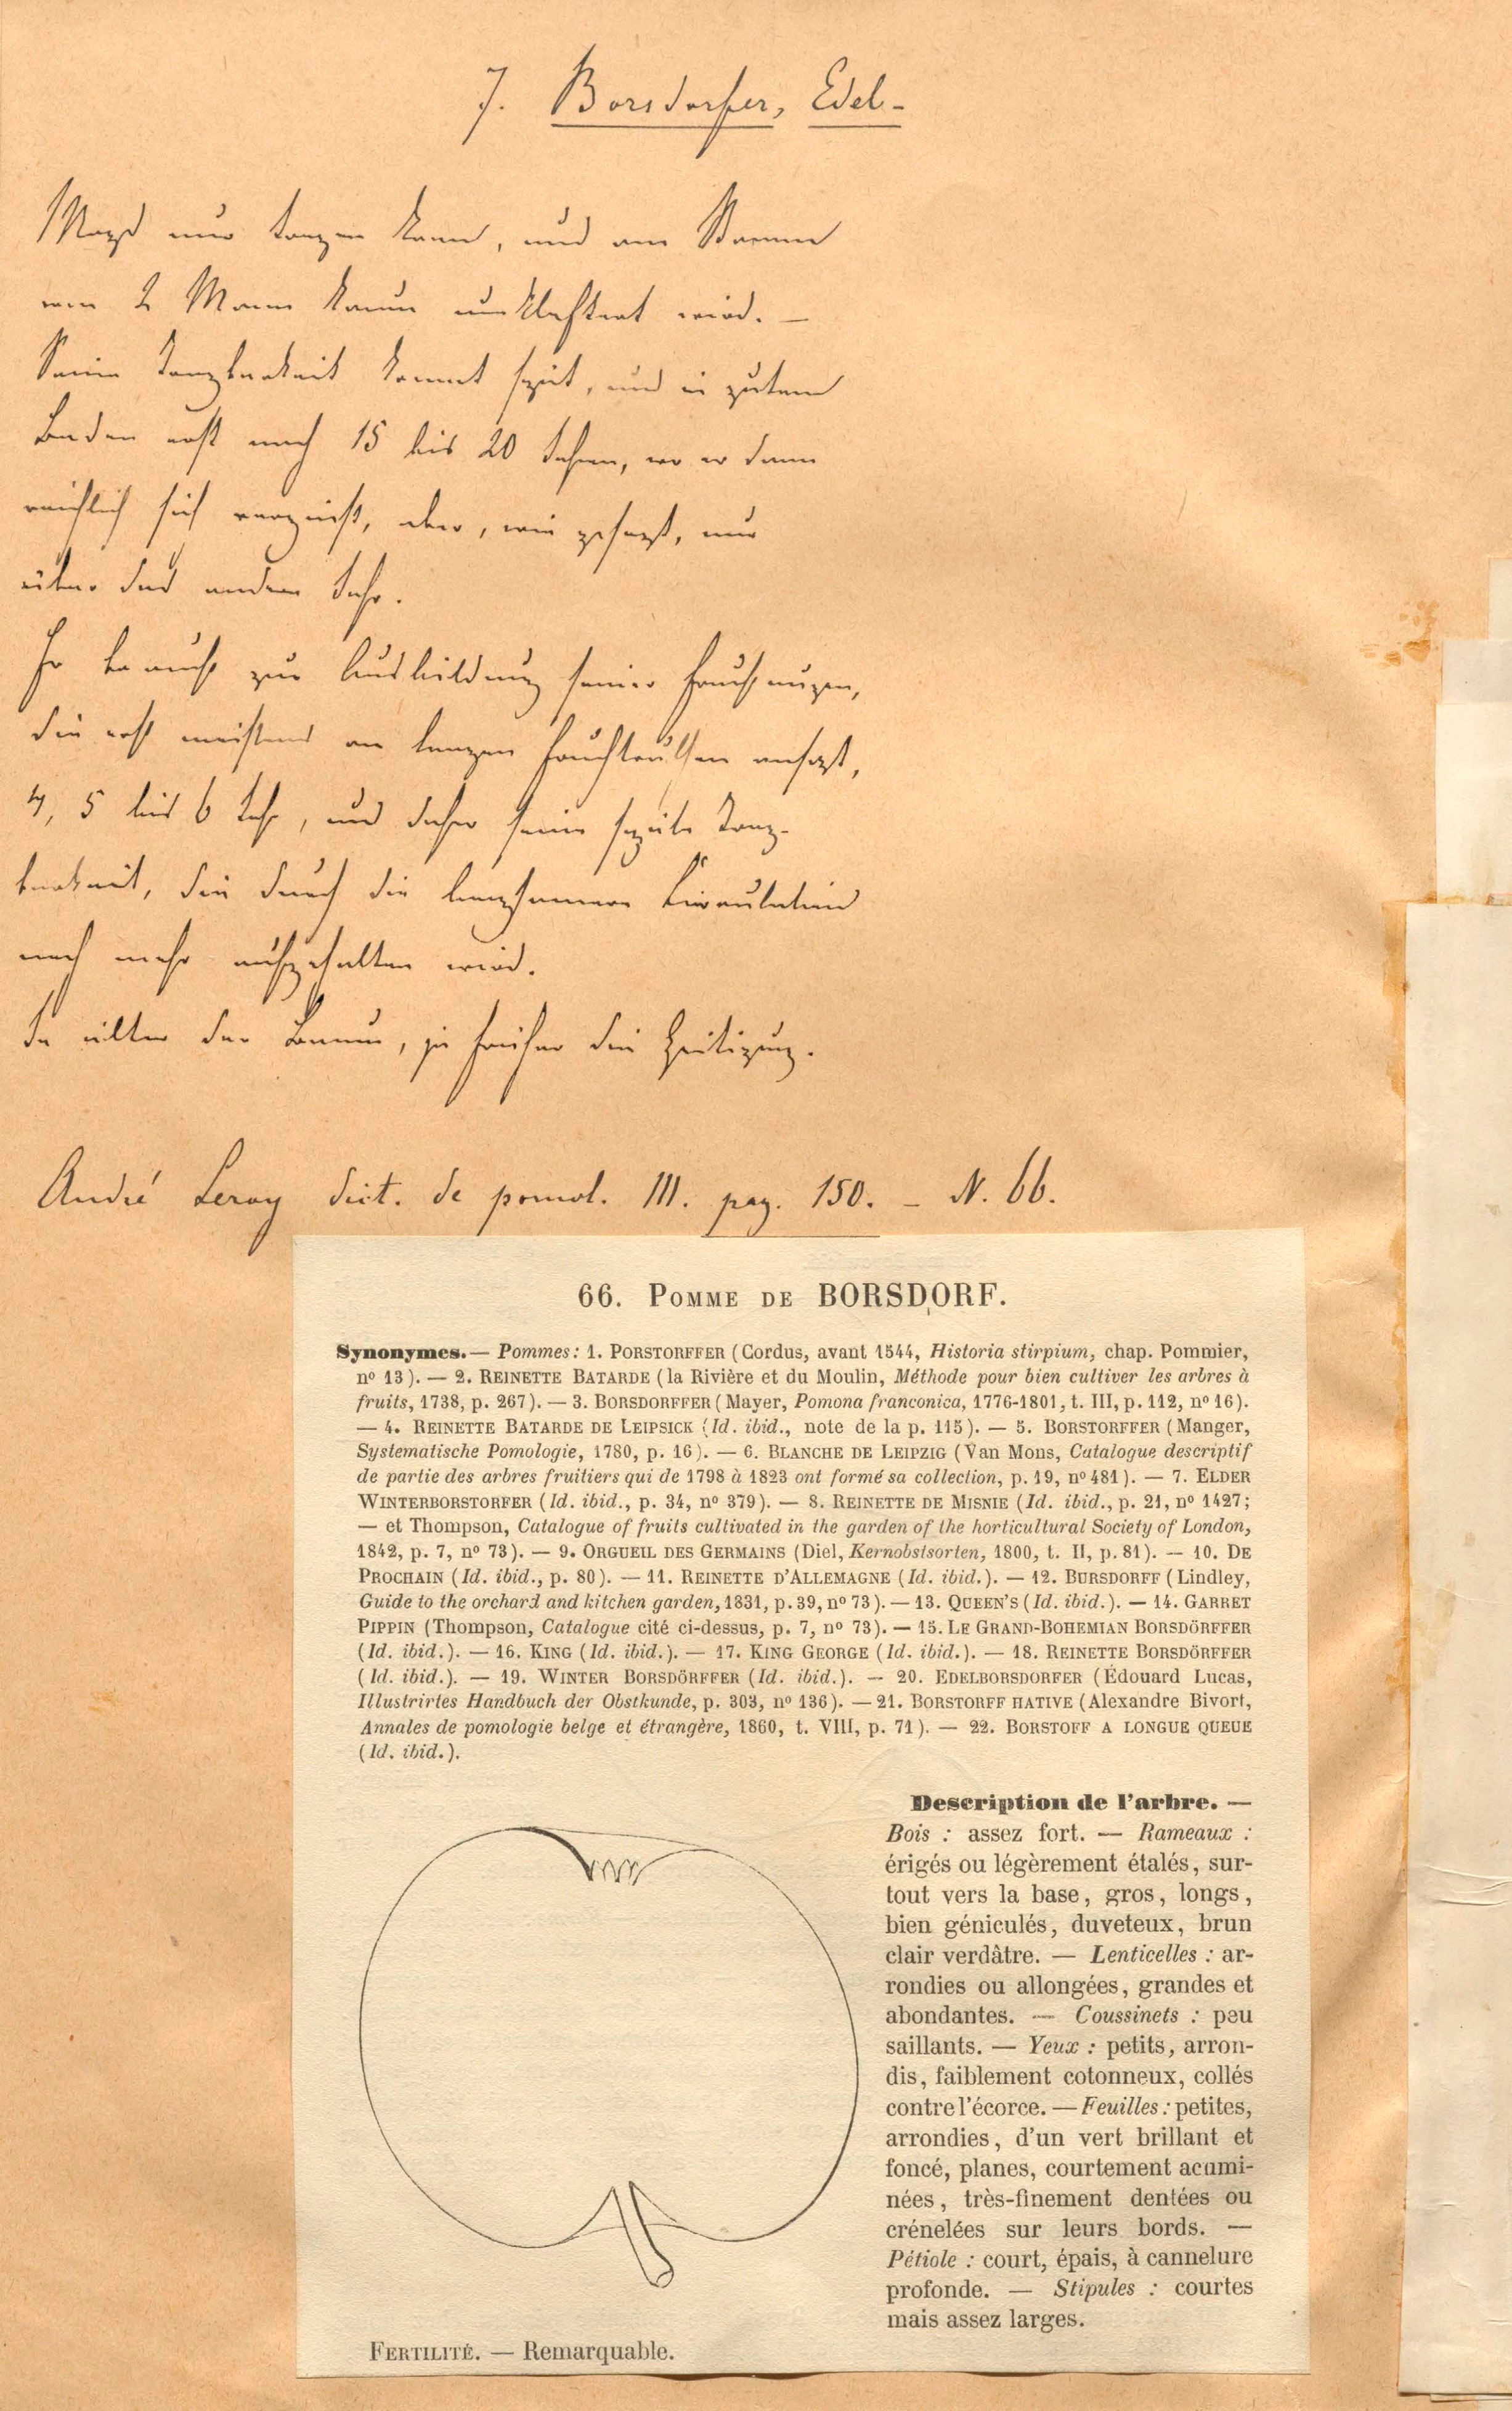 7. Borsdorfer, Edel-
nur tragen kann, und am Stamme
von 2 Mann kaum umklaftert wird. —
Seine Tragbarkeit kommt spät, und in gutem
Boden erst nach 15 bis 20 Jahren, wo er dann
reichlich sich aber, wie gesagt, nur
über das andere Jahr.
Er braucht zur Ausbildung seiner Fruchtaugen,
die erst meistens an langen ansetzt,
4, 5 bis 6 Jahr, und daher seine späte Trag-
barkeit, die durch die langsamere Circulation
noch mehr aufgehalten wird.
Je älter der Baum, je früher die Zeitigung.
André Leroy dict. de pomol. III. pag. 150. — N. 66.
66. POMME DE BORSDORF.
Synonymes. — Pommes : 1. PORSTORFFER (Cordus, avant 1544, Historia stirpium, chap. Pommier,
nº 13). — 2. REINETTE BATARDE (la Rivière et du Moulin, Méthode pour bien cultiver les arbres à
fruits, 1738, p. 267). — 3. BORSDORFFER (Mayer, Pomona franconica, 1776-1801, t. III, p. 112, nº 16).
— 4. REINETTE BATARDE DE LEIPSICK (Id. ibid., note de la p. 115). — 5. BORSTORFFER (Manger,
Systematische Pomologie, 1780, p. 16). — 6. BLANCHE DE LEIPZIG (Van Mons, Catalogue descriptif
de partie des arbres fruitiers qui de 1798 à 1823 ont formé sa collection, p. 19, nº 481). — 7. ELDER
WINTERBORSTORFER (Id. ibid., p. 34, nº 379). — 8. REINETTE DE MISNIE (Id. ibid., p. 21, nº 1427;
— et Thompson, Catalogue of fruits cultivated in the garden of the horticultural Society of London,
1842, p. 7, nº 73). — 9. ORGUEIL DES GERMAINS (Diel, Kernobstsorten, 1800, t. II, p. 81). — 10. DE
PROCHAIN (Id. ibid., p. 80). — 11. REINETTE D'ALLEMAGNE (Id. ibid.). — 12. BURSDORFF (Lindley,
Guide to the orchard and kitchen garden, 1831, p. 39, nº 73). — 13. QUEEN'S (Id. ibid.). — 14. GARRET
PIPPIN (Thompson, Catalogue cité ci-dessus, p. 7, nº 73). — 15. LE GRAND-BOHEMIAN BORSDÖRFFER
(Id. ibid.). — 16. KING (Id. ibid.). — 17. KING GEORGE (Id. ibid.). — 18. REINETTE BORSDÖRFFER
(Id. ibid.). — 19. WINTER BORSDÖRFFER (Id. ibid.). — 20. EDELBORSDORFER (Édouard Lucas,
Illustrirtes Handbuch der Obstkunde, p. 303, nº 136). — 21. BORSTORFF HATIVE (Alexandre Bivort,
Annales de pomologie belge et étrangère, 1860, t. VIII, p. 71). — 22. BORSTOFF A LONGUE QUEUE
(Id. ibid.).
Description de l'arbre. —
Bois : assez fort. — Rameaux :
érigés ou légèrement étalés, sur-
tout vers la base, gros, longs,
bien géniculés, duveteux, brun
clair verdâtre. — Lenticelles : ar-
rondies ou allongées, grandes et
abondantes. — Coussinets : peu
saillants. — Yeux : petits, arron-
dis, faiblement cotonneux, collés
contre l'écorce. — Feuilles : petites,
arrondies, d'un vert brillant et
foncé, planes, courtement acumi-
nées, très-finement dentées ou
crénelées sur leurs bords. —
Pétiole : court, épais, à cannelure
profonde. — Stipules : courtes
mais assez larges.
FERTILITÉ. — Remarquable.